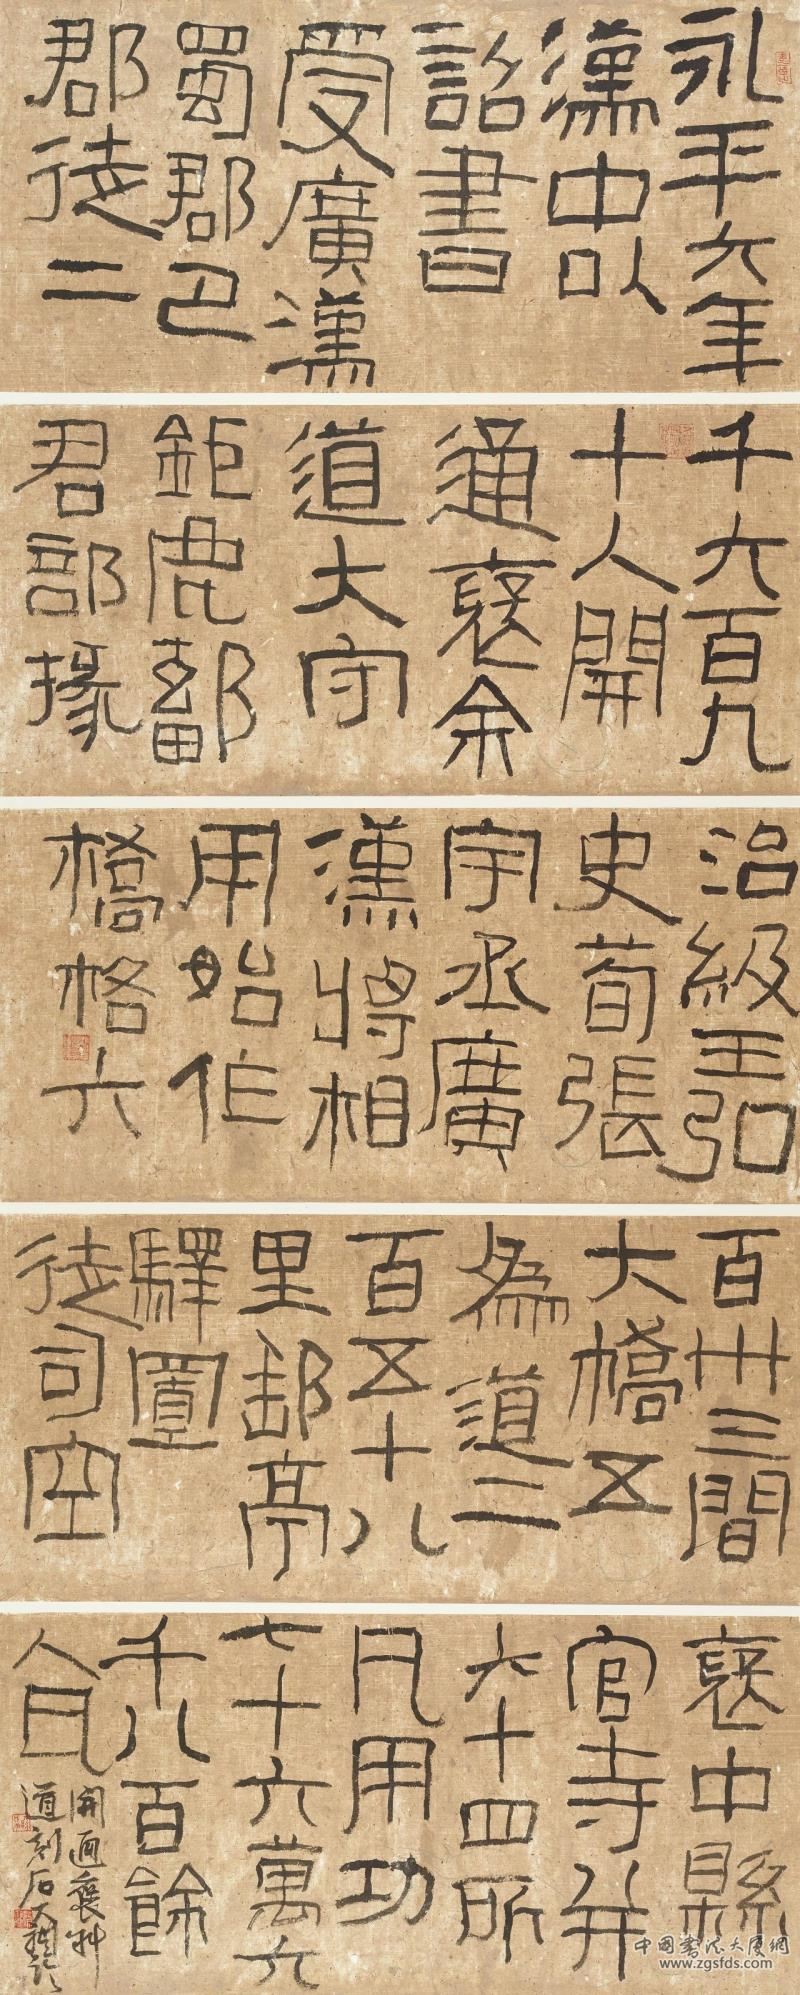 永平六年
漢中以
詔書
受廣漢
蜀郡巴
郡徒二
千六百九
十人開
通褒余
道大守
鉅鹿鄐
君部掾
治級王弘
史荀張
宇丞廣
漢將相
用始作
橋格六
百卅三間
大橋五
為道二
百五十八
里郵亭
驛置
徒司空
褒中縣
官寺并
六十四所
凡用功
七十六萬六
千八百餘
人
開通褒斜
道刻石
中国书法大厦網
www.zgsfds.com